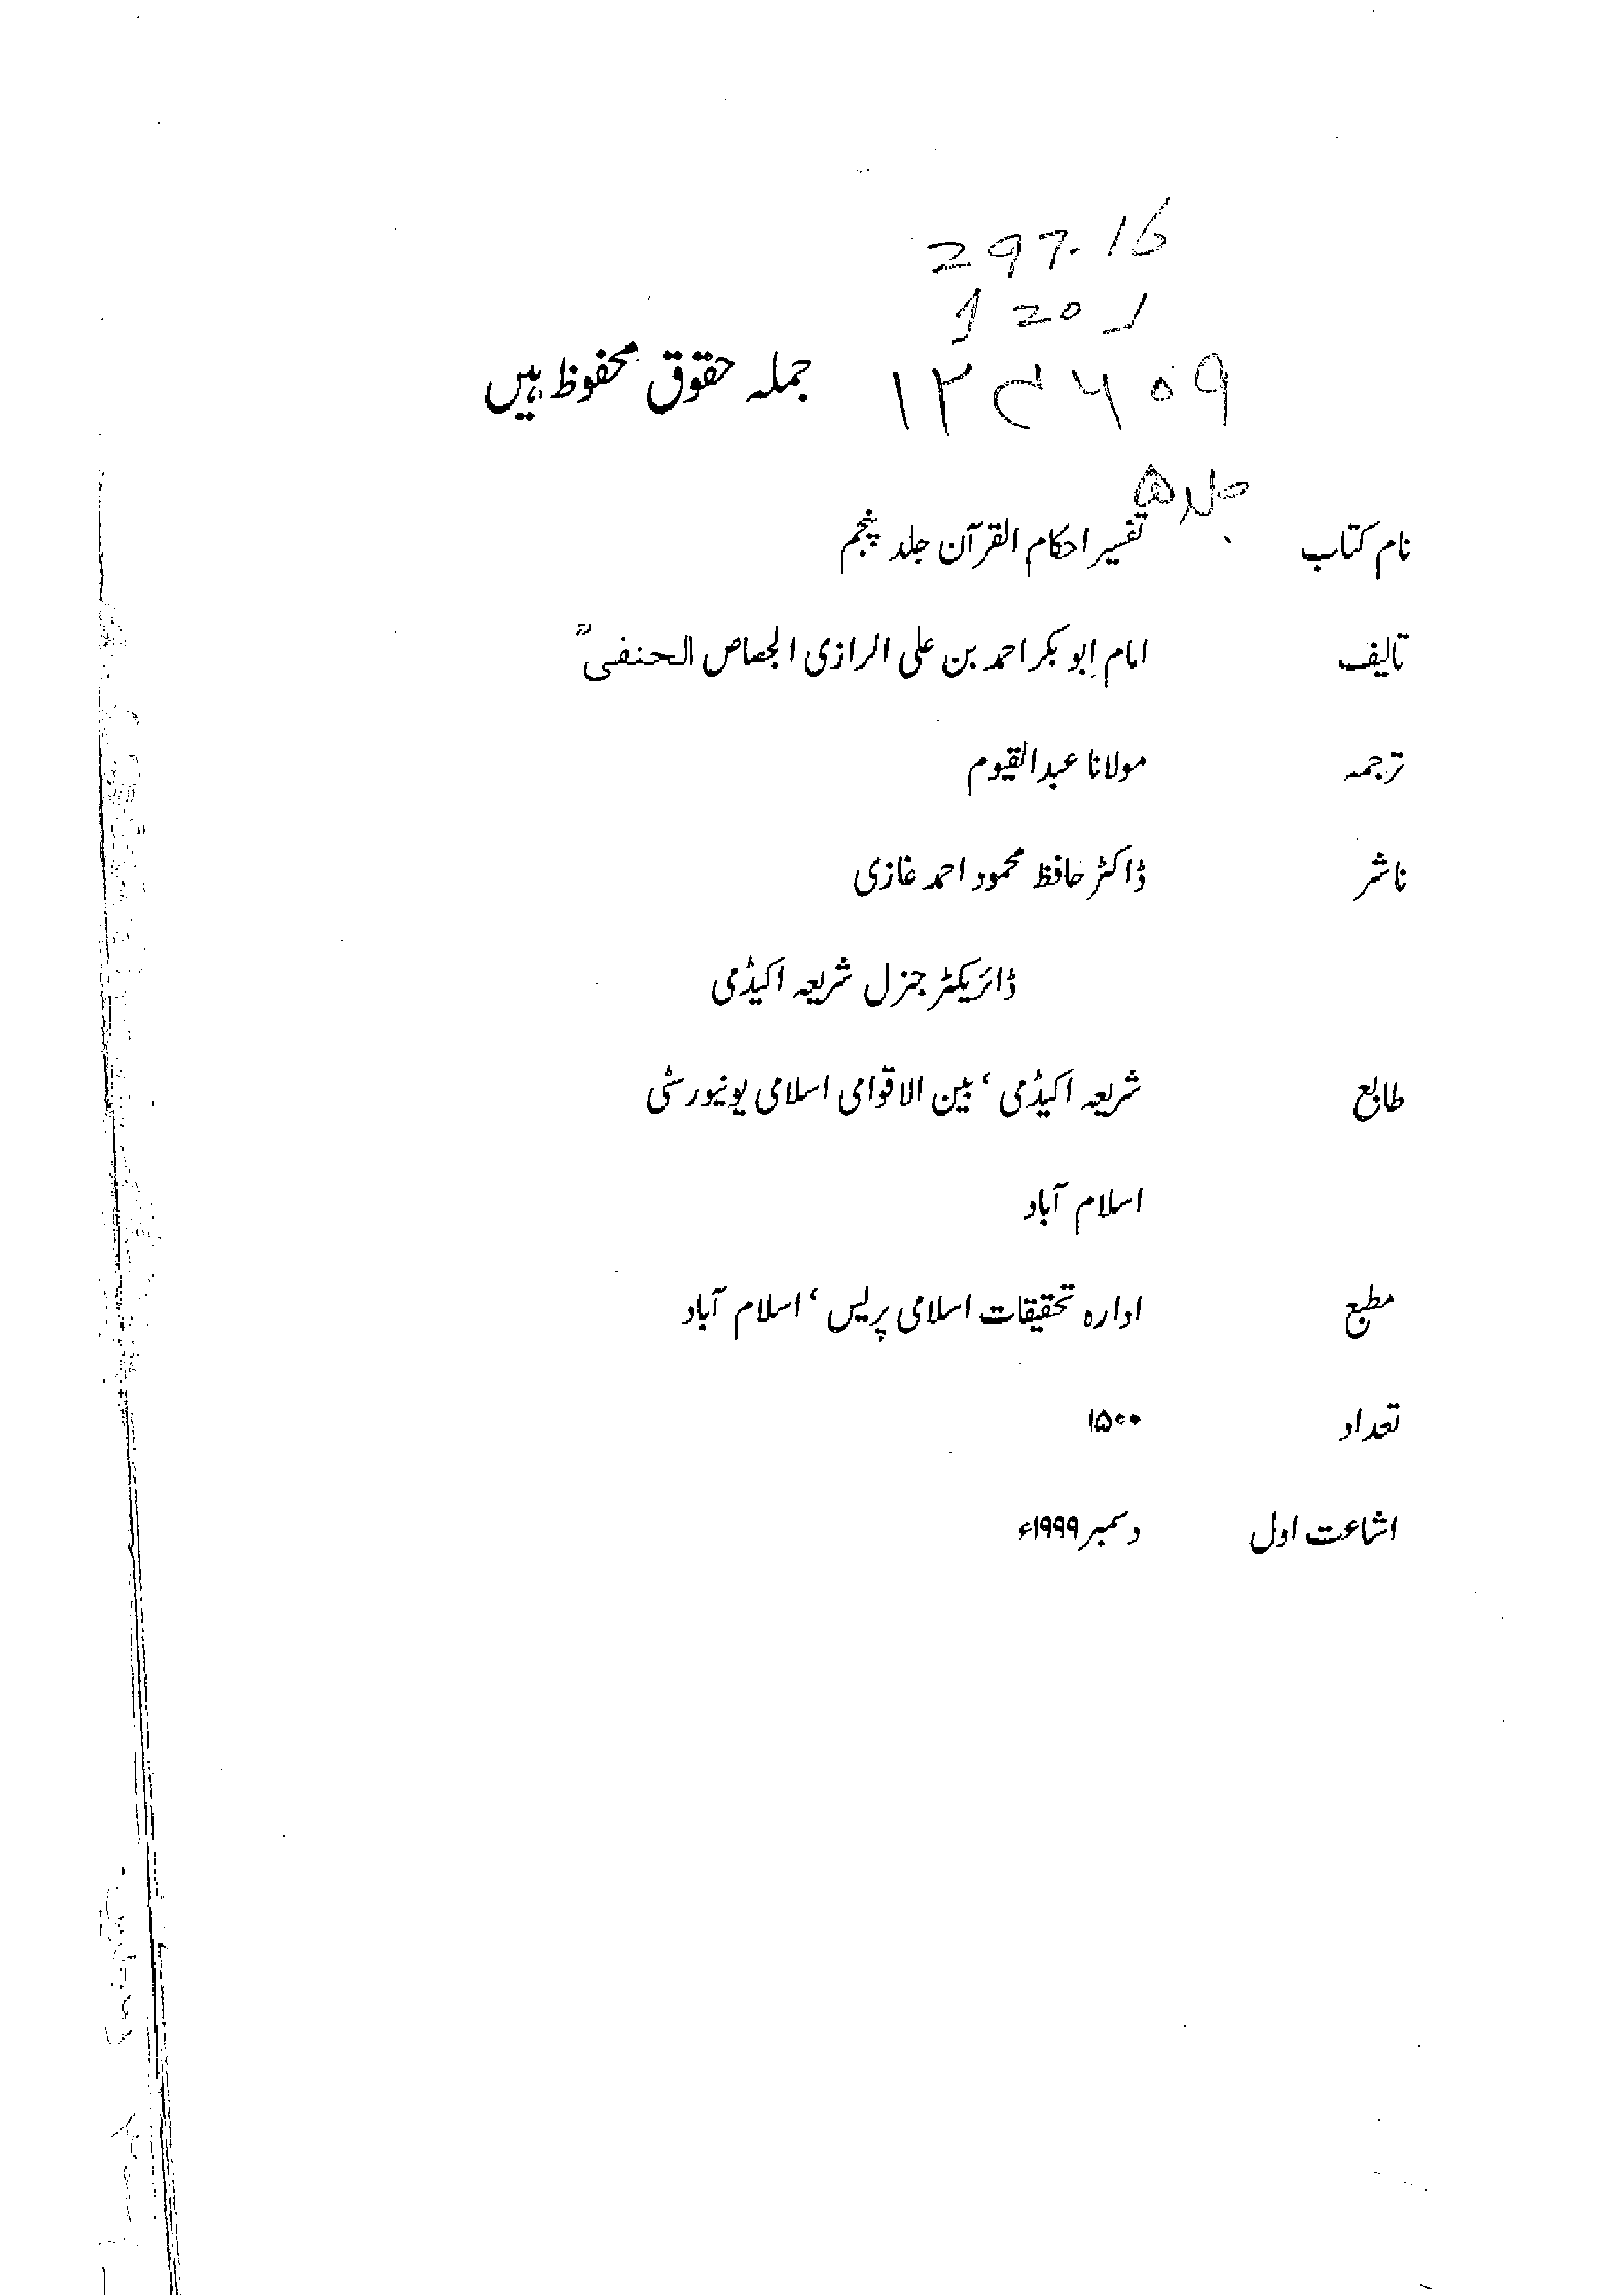 297.16
جملہ حقوق محفوظ ہیں
جلد ۵
نام کتاب تفسیر احکام القرآن جلد پنجم
تالیف امام ابو بکر احمد بن علی الرازی الجصاص الحنفیؒ
ترجمہ مولانا عبدالقیوم
ناشر ڈاکٹر حافظ محمود احمد غازی
ڈائریکٹر جنرل شریعہ اکیڈمی
طابع شریعہ اکیڈمی، بین الاقوامی اسلامی یونیورسٹی
اسلام آباد
مطبع ادارہ تحقیقات اسلامی پریس، اسلام آباد
تعداد ۱۵۰۰
اشاعت اول دسمبر ۱۹۹۹ء